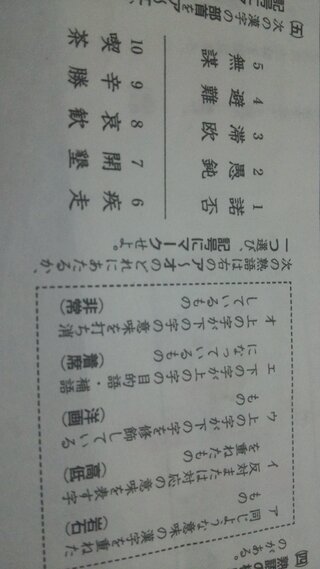 (四) 熟語の
のがある。
ア 同じような意味の漢字を重ねた
もの (岩石)
イ 反対または対応の意味を表す字
を重ねたもの (高低)
ウ 上の字が下の字を修飾している
もの (洋画)
エ 下の字が上の字の目的語・補語
になっているもの (着席)
オ 上の字が下の字の意味を打ち消
しているもの (非常)
次の熟語は右のア〜オのどれにあたるか、
一つ選び、記号にマークせよ。
1 諾否
2 愚鈍
3 滞欧
4 避難
5 無謀
6 疾走
7 開墾
8 哀歓
9 辛勝
10 喫茶
(五) 次の漢字の部首をア〜
記号に